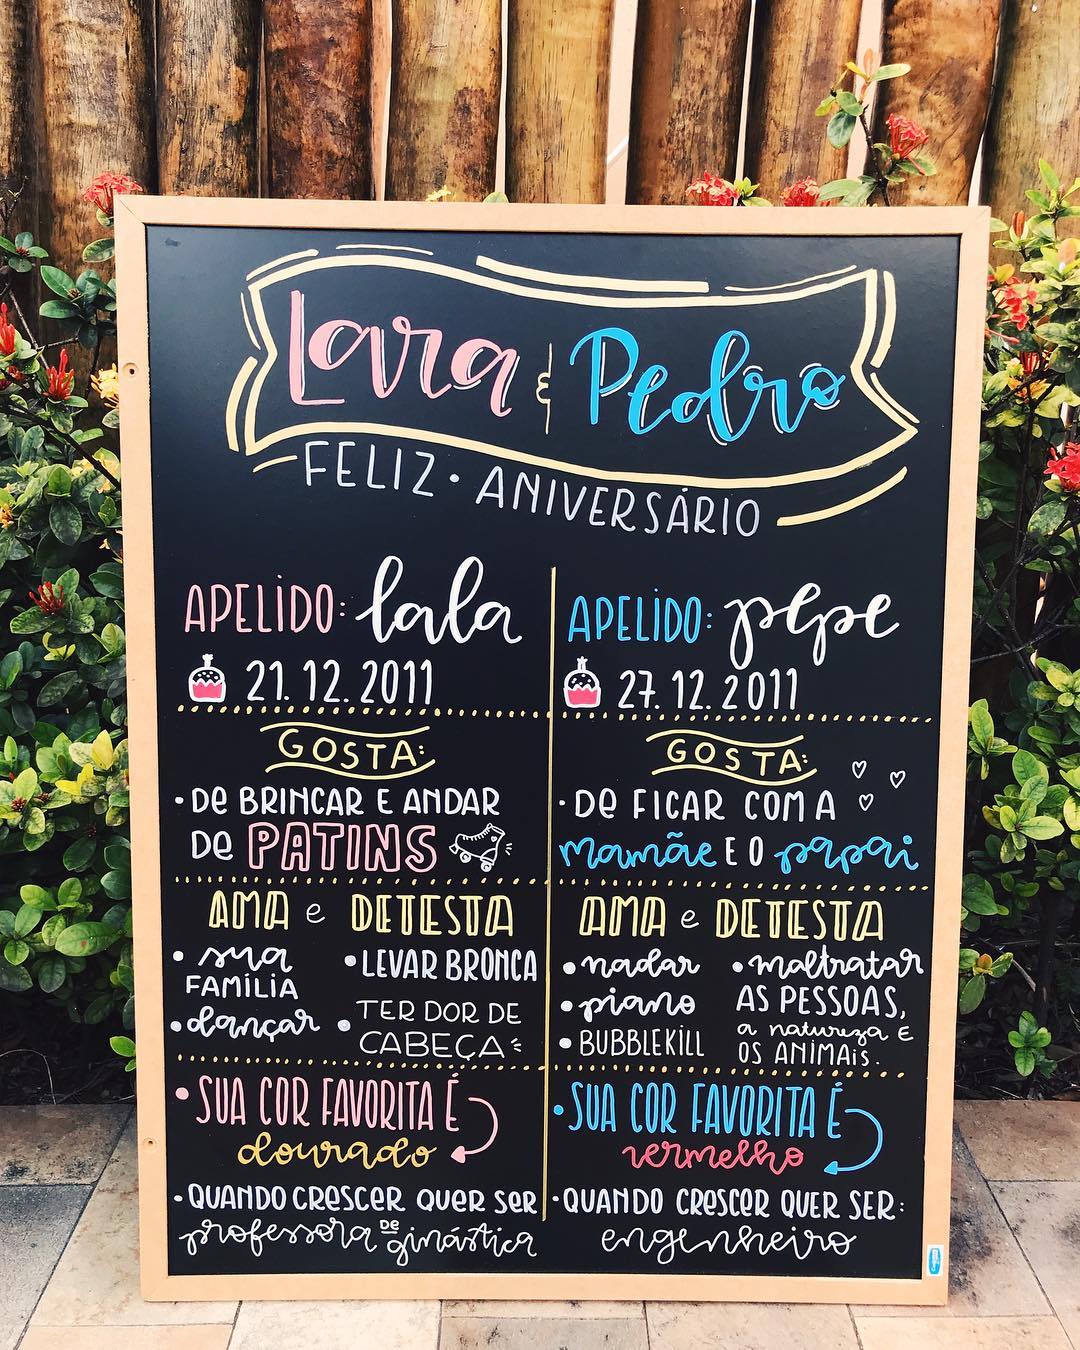 Lara & Pedro
FELIZ • ANIVERSÁRIO
APELIDO: lala
21.12.2011
GOSTA:
• De BRINCAR E ANDAR
De PATINS
AMA e DETESTA
• sua
FAMÍLIA
• dançar
• LEVAR BRONCA
• TER DOR DE
CABEÇA
• SUA COR FAVORITA É
dourado
• QUANDO CRESCER QUER SER
professora DE ginástica
APELIDO: pepe
27.12.2011
GOSTA:
• De FICAR COM A
mamãe E O papai
AMA e DETESTA
• nadar
• piano
• BUBBLEKILL
• maltratar
AS PESSOAS,
a natureza E
OS ANIMAiS.
• SUA COR FAVORITA É
vermelho
• QUANDO CRESCER QUER SER:
engenheiro